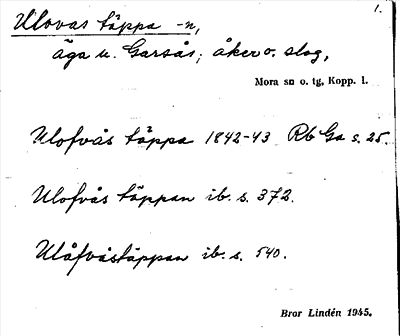 1.
Ulovas täppa -n,
äga u. Garsås; åker o. slog,
Mora sn o. tg, Kopp. l.
Ulofvås täppa 1842-43 Rb Ga s. 25.
Ulofvås täppan ib. s. 372.
Ulåfvåstäppan ib. s. 540.
Bror Lindén 1945.